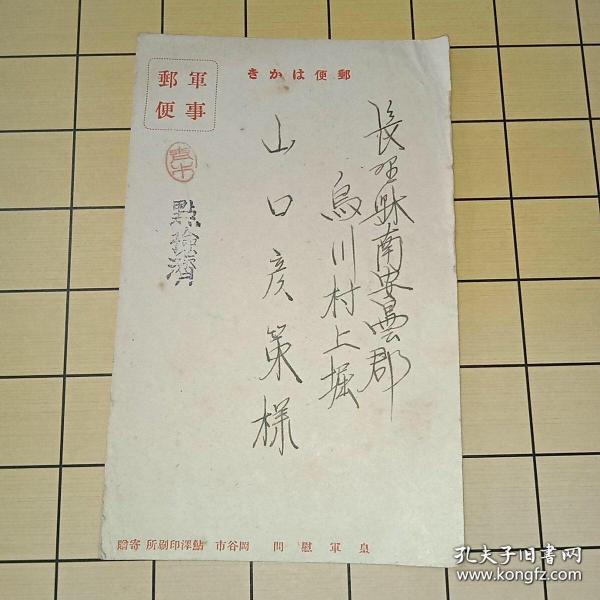 郵便はかき
軍事
郵便
長野縣南安曇郡
烏川村上掘
山口彦策様
點檢濟
皇軍慰問 岡谷市 鮎澤印刷所 寄贈
孔夫子旧书网
www.kongfz.com